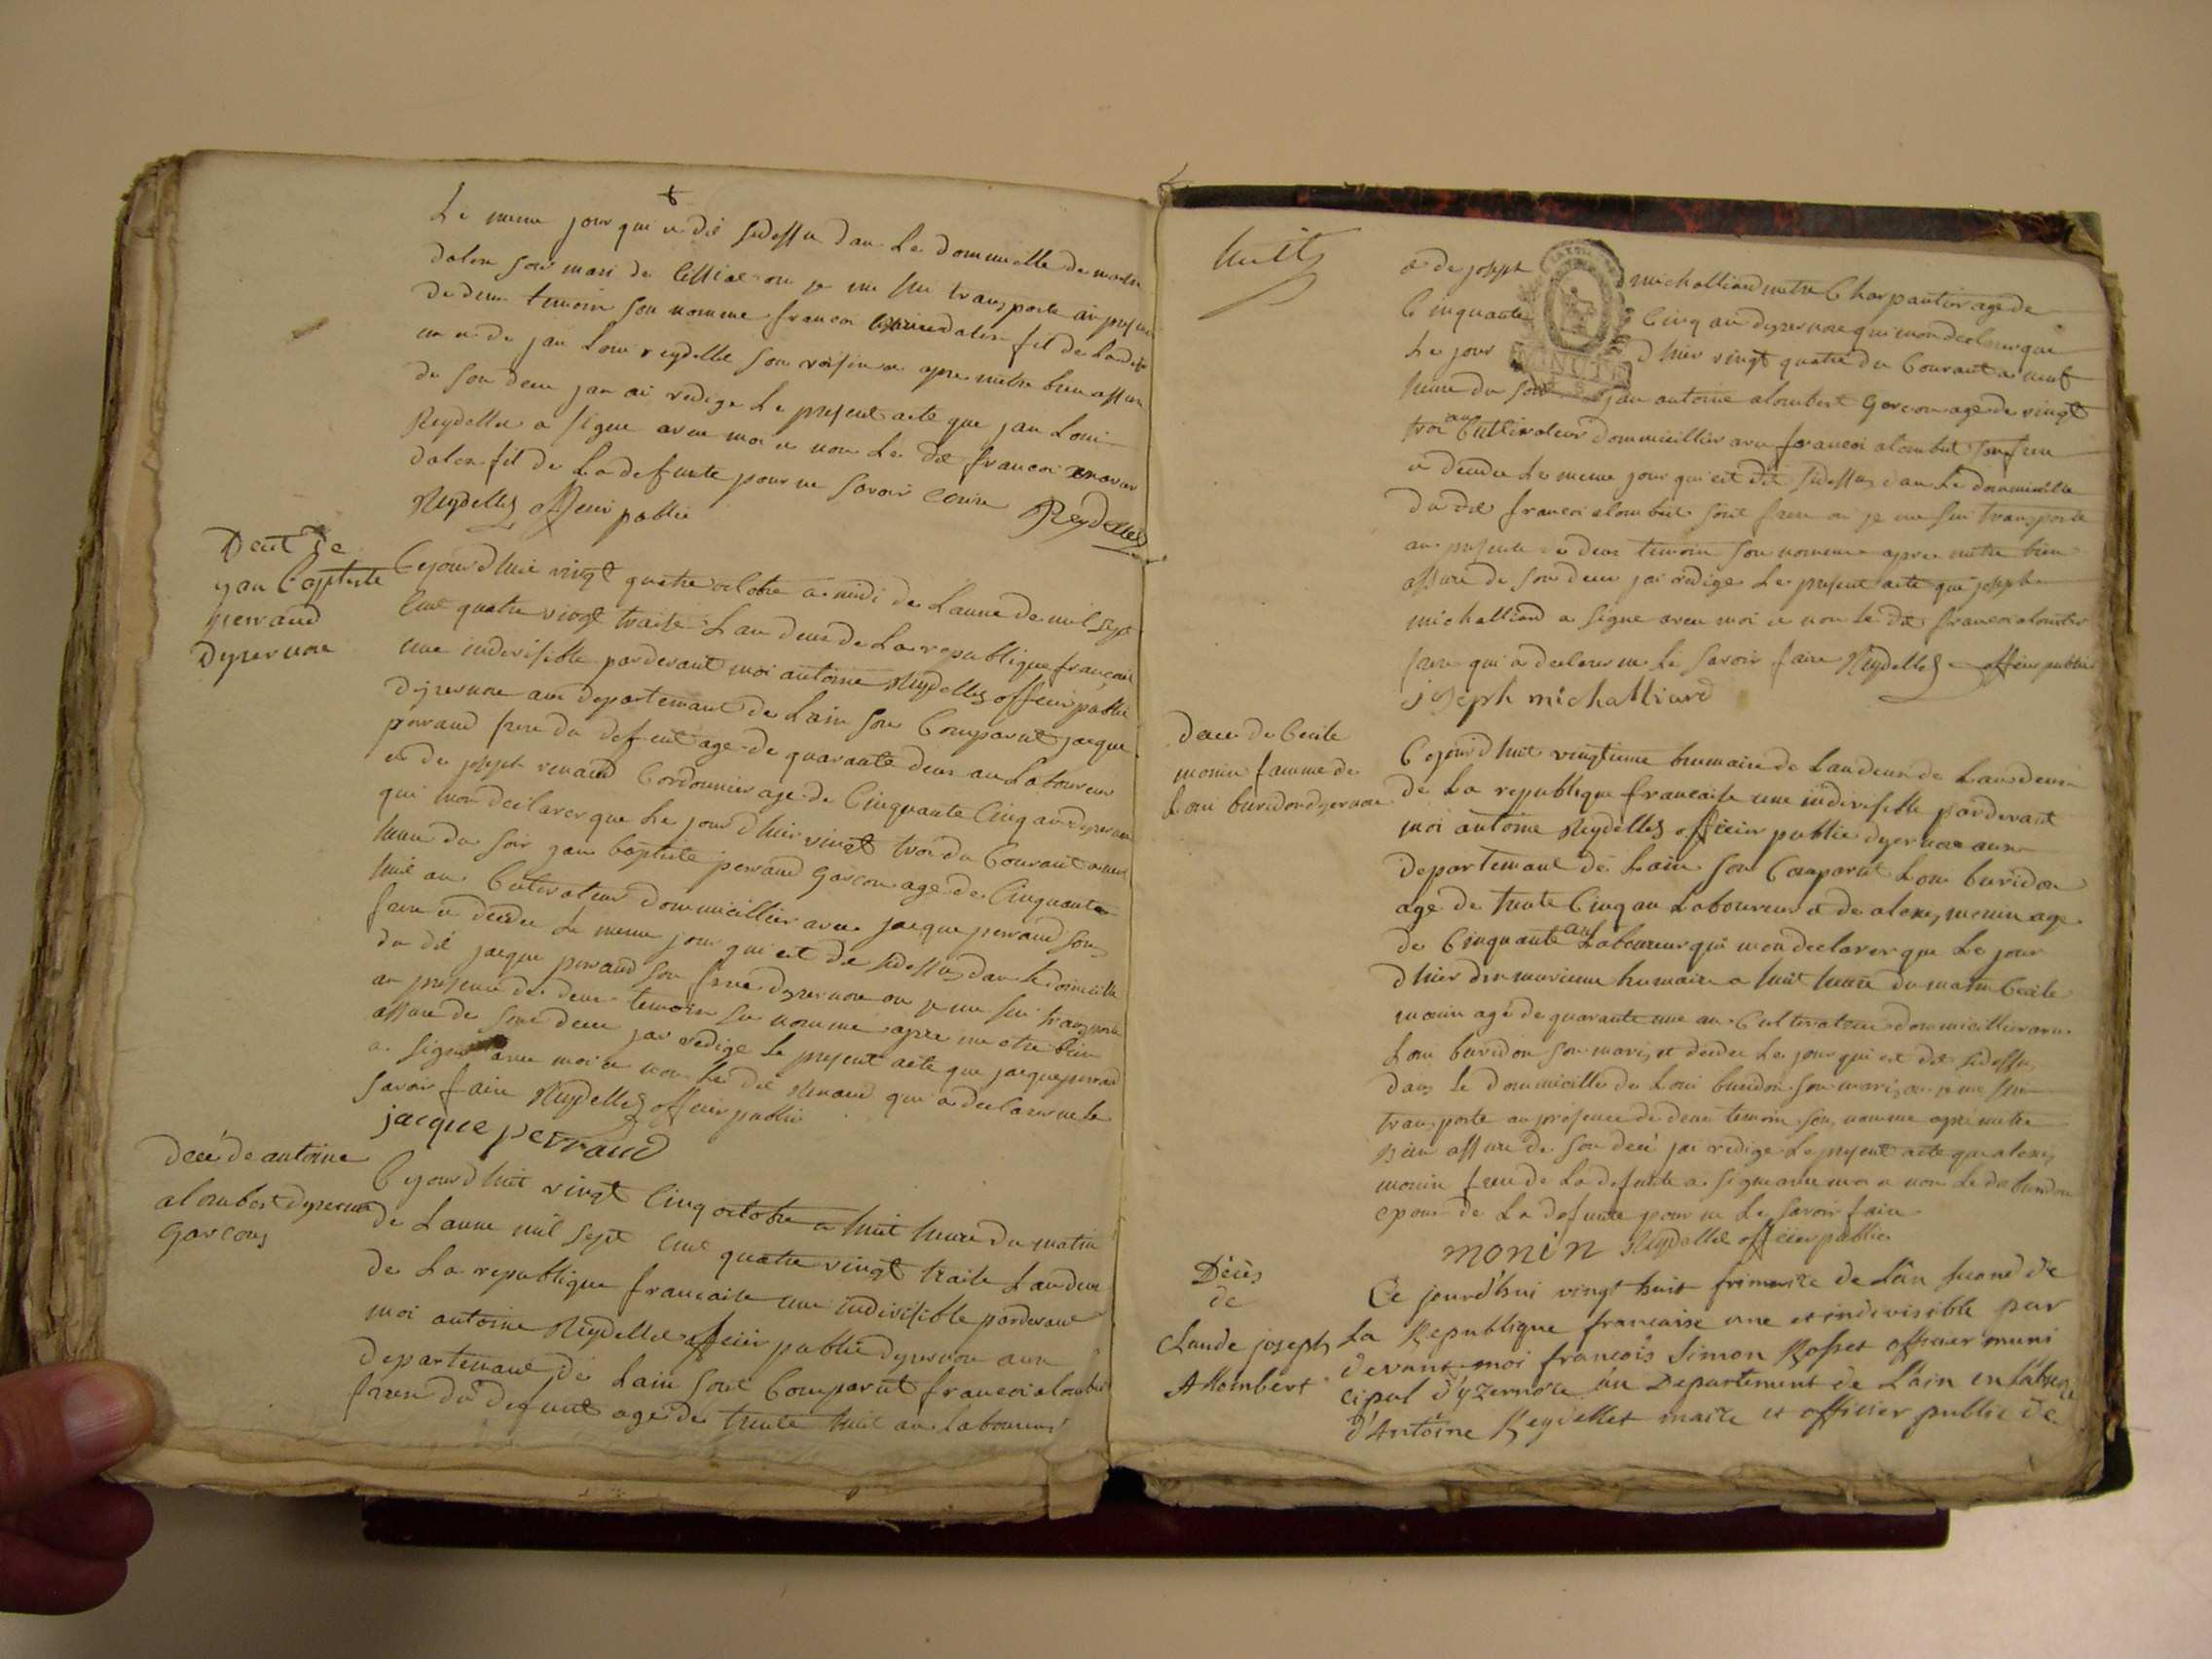 Le meme jour qui e dit sidessu dan Le dommicille de
dalen son mari de où je me sui transporte an presence
de deux temoin son nomme francoi dalen fil de La defunte
e de jan Loui reydelle son voisin e apre metre bien assure
de son dece jan ai redige Le present acte que jan Loui
Reydellet a signe avec moi e non Le dit francoi
dalen fil de La defunte pour ne savoir ecrire Reydellet
Reydellet officier public
Decet de
jan baptiste
perraud
dyzernore
Cejourdhuit vingt quatre octobre a midi de Lanne de mil sept
cent quatre vingt traise Lan deux de La republique francaise
une indivisible pardevant moi antoine Reydellet officier public
dyzernore au departemant de Lain son Comparut jacque
perraud frere du defunt age de quarante deux an Laboureur
et de joseph renaud Cordonnier age de Cinquante Cinq an dyzernore
qui mon declarer que Le jour dhier vingt troi du Courant a neuf
heure du soir jan baptiste perraud garcon age de Cinquante
huit an Cultivateur dommicillier avec jacque perraud son
frere e decedee Le meme jour qui est dit sidessus dan Le domicille
du dit jacque perraud son frere dyzernore ou je me sui transporte
an presence de deux temoin su nomme apre me etre bien
assure de sont dece jai redige Le present acte que jacque perraud
a signe avec moi e non Le dit Renaud qui a declarer ne Le
savoir faire Reydellet officier public
jacque perraud
decé de antoine
alombert dyzernore
garcons
Cejourdhuit vingt Cinq octobre a huit heure du matin
de Lanne mil sept cent quatre vingt traise Lan deux
de La republique francaise une indivisible pardevant
moi antoine Reydellet officier public dyzernore aux
departemant de Lain sont Comparut francoi alombert
frere du defunt age de trente huit an laboureur
huit
e de joseph michalliard metre Charpantier age de
Cinquante Cinq an dyzernore qui mon declarer que
Le jour dhier vingt quatre du Courant a neuf
heure du soir jan antoine alombert garcon age de vingt
troi an Cultivateur dommicillier avec francoi alombert son frere
e decedee Le meme jour qui est dit sidessus dan Le dommicille
du dit francoi alombert sont frere ou je me sui transporte
an presence de deux temoin son nomme apre metre bien
assure de son dece jai redige Le present acte que joseph
michalliard a signe avec moi e non Le dit francoi alombert
frere qui a declerer ne Le savoir faire Reydellet officier public
joseph michalliard
dece de Cecile
monin famme de
Loui buridon dyzernore
Cejourdhuit vingtieme brumaire de Lan deux de Lan deux
de La republique francaise une indivisible pardevant
moi antoine Reydellet officier public dyzernore aux
departemant de Lain son Comparut Loui buridon
age de trente Cinq an Laboureur et de alexi monin age
de Cinquante an Laboureur qui mon declarer que Le jour
dhier a huit heure du matin Cecile
monin agé de quarante une an Cultivateur dommicillier avec
Loui buridon son mari et decedee Le jour qui est dit sidessus
dans le dommicille de Loui buridon son mari ou je me sui
transporte an presence de deux temoin son nomme apre metre
bien assure de son decé jai redige Le present acte que alexi
monin frere de La defunte a signe avec moi e non Le dit buridon
epoux de La defunte pour ne Le savoir faire
monin Reydellet officier public
Décès
de
Claude joseph
Allombert
Ce jourd'hui vingt huit frimaire de L'an second de
La Republique francaise une et indivisible par
devant moi francois Simon Rosset officier muni
cipal d'yzernore au Departement de L'ain en l'absence
d'Antoine Reydellet maire et officier public de